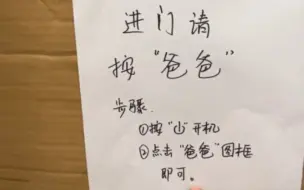 进门请
按“爸爸”
步骤:
①按“山”开机
②点击“爸爸”图框
即可。